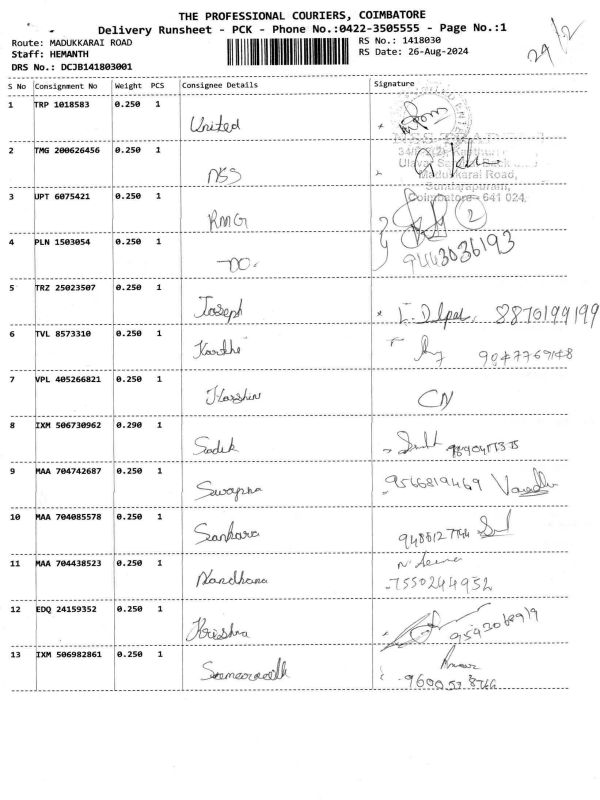 THE PROFESSIONAL COURIERS, COIMBATORE
Delivery Runsheet - PCK - Phone No.:0422-3505555 - Page No.:1
29/2
Route: MADUKKARAI ROAD RS No.: 1418030
Staff: HEMANTH RS Date: 26-Aug-2024
DRS No.: DCJB141803001
S No Consignment No Weight PCS Consignee Details Signature
1 TRP 1018583 0.250 1
United
2 TMG 200626456 0.250 1
NSS
Madukkarai Road,
Sundarapuram,
Coimbatore - 641 024.
3 UPT 6075421 0.250 1
RMG 2
4 PLN 1503054 0.250 1
DO. 9443036193
5 TRZ 25023507 0.250 1
Joseph 8870199199
6 TVL 8573310 0.250 1
Karthi 9047769148
7 VPL 405266821 0.250 1
Harshin CN
8 IXM 506730962 0.290 1
Sadik
9 MAA 704742687 0.250 1
Swapna 9566819469
10 MAA 704085578 0.250 1
Sankara
11 MAA 704438523 0.250 1
Nandhana 7550244952
12 EDQ 24159352 0.250 1
Krishna
13 IXM 506982861 0.250 1